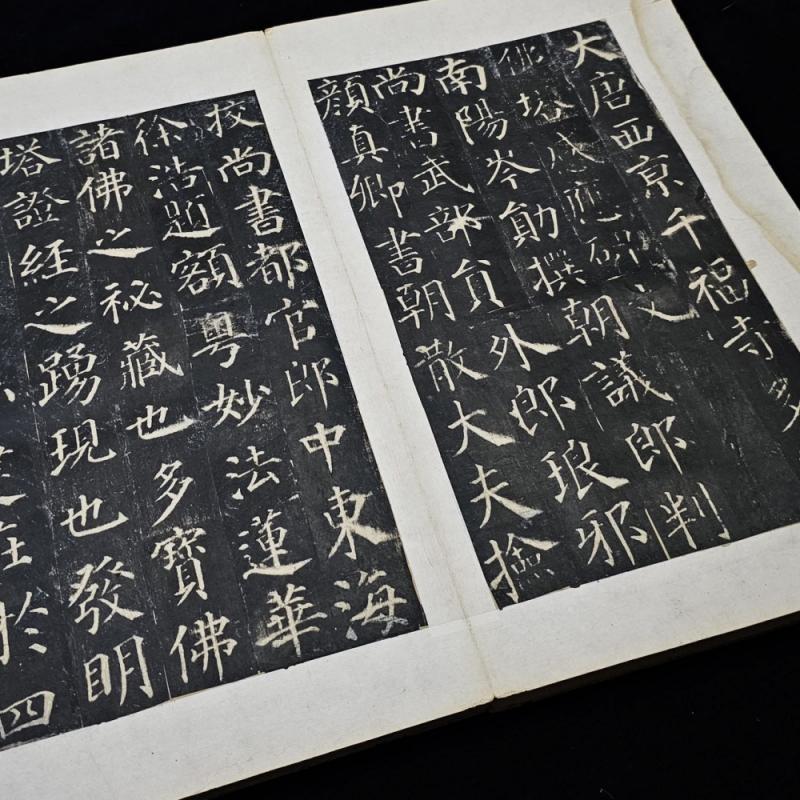 大唐西京千福寺多
佛塔感應碑文
南陽岑勛撰朝議郎判
尚書武部員外郎琅邪
顏真卿書朝散大夫撿
校尚書都官郎中東海
徐浩題額粵妙法蓮華
諸佛之祕藏也多寶佛
塔證經之踴現也發明
在於四